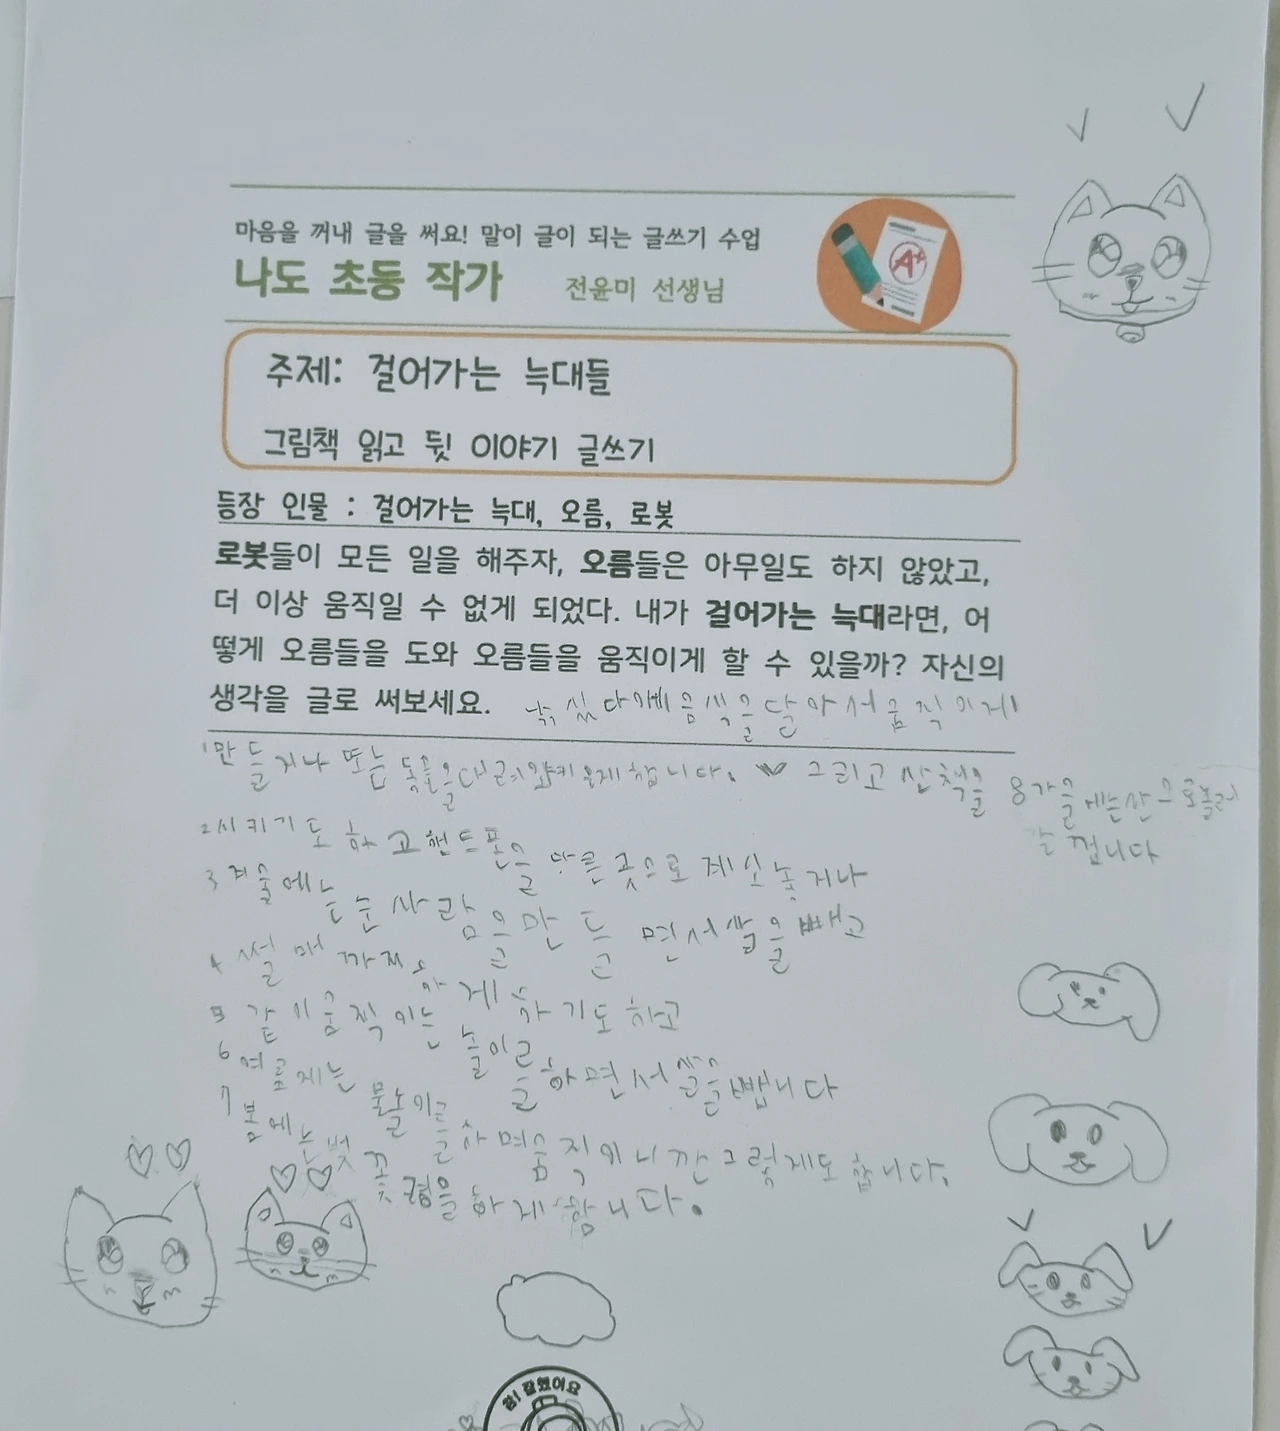 마음을 꺼내 글을 써요! 말이 글이 되는 글쓰기 수업
나도 초등 작가 전윤미 선생님
A+
주제: 걸어가는 늑대들
그림책 읽고 뒷 이야기 글쓰기
등장 인물 : 걸어가는 늑대, 오름, 로봇
로봇들이 모든 일을 해주자, 오름들은 아무일도 하지 않았고,
더 이상 움직일 수 없게 되었다. 내가 걸어가는 늑대라면, 어
떻게 오름들을 도와 오름들을 움직이게 할 수 있을까? 자신의
생각을 글로 써보세요.
낚싰다에 음싹을 달아서 움직이게
1 만들거나 또는 동물을 합니다. 그리고 산책을
8 가을에는 산으로 놀러
갈 껍니다
2 시키기도 하고 핸드폰을 다른 곳으로 거나
3 겨울에는 눈사람을 만들면서 쌀을 빼고
4 썰매까지 하게 하기도 하고
5 같이 움직이는 놀이를 하면서 쌀을 뺍니다
6 여름에는 물놀이를 하며 움직이니깐 그렇게도 합니다.
7 봄에는 벚꽃 을 하게 합니다.
참! 잘했어요